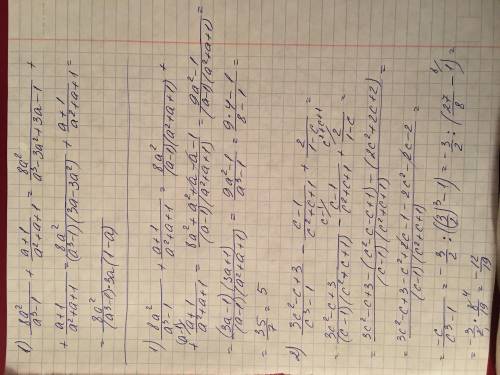 1) 8a²/(a³-1) + (a+1)/(a²+a+1) = 8a²/(a³-3a²+3a-1) +
+ (a+1)/(a²+a+1) = 8a²/((a³-1)(3a-3a²)) + (a+1)/(a²+a+1) =
= 8a²/((a³-1)·3a(1-a))
1) 8a²/(a³-1) + (a+1)/(a²+a+1) = 8a²/((a-1)(a²+a+1)) +
+ (a-1)(a+1)/(a²+a+1) = (8a²+a²+a-a-1)/((a-1)(a²+a+1)) = (9a²-1)/((a-1)(a²+a+1)) =
= (3a-1)(3a+1)/((a-1)(a²+a+1)) = (9a²-1)/(a³-1) = (9·4-1)/(8-1) =
= 35/7 = 5
2) (3c²-c+3)/(c³-1) - (c-1)/(c²+c+1) + 2/(1-c) =
= (3c²-c+3)/((c-1)(c²+c+1)) - (c-1)(c-1)/(c²+c+1) + (c²+c+1) 2/(1-c) =
= (3c²-c+3-(c²-c-c+1)-(2c²+2c+2))/((c-1)(c²+c+1)) =
= (3c²-c+3-c²+2c-1-2c²-2c-2)/((c-1)(c²+c+1)) =
= -c/(c³-1) = -3/2 : ((3/2)³-1) = -3/2 : (27/8 - 1) =
= -3/2 · 8/19 = -12/19